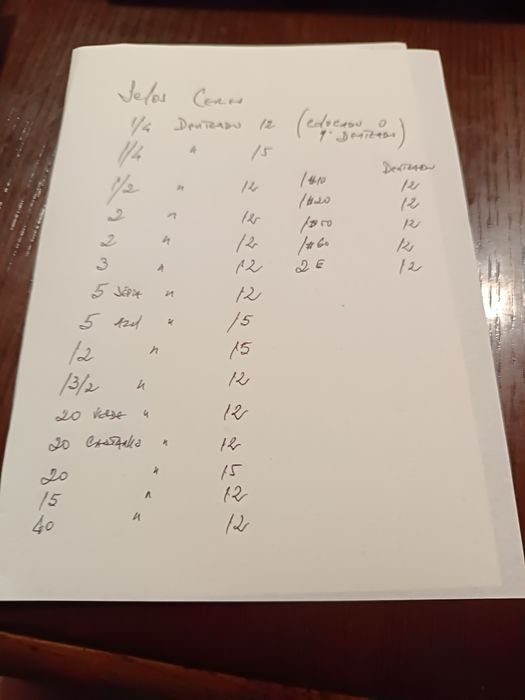 Selos Ceres
1/4 Denteado 12 (colocado o nº denteado)
1/4 " 15
1/2 " 12
2 " 12
2 " 12
3 " 12
5 sépia " 12
5 azul " 15
12 " 15
13/2 " 12
20 verde " 12
20 castanho " 12
20 " 15
15 " 12
40 " 12
Denteado
1#10 12
1#20 12
1#50 12
1#60 12
2 E 12